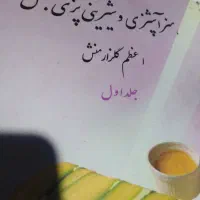 هنر آشپزی و شیرینی پزی
اعظم گلزار منش
جلد اول